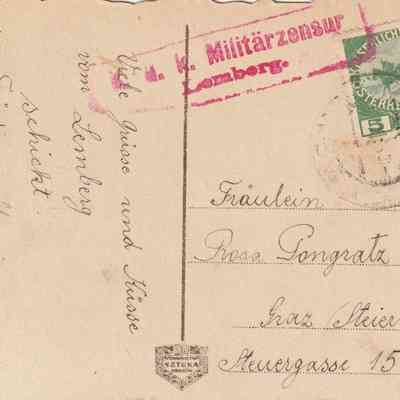 k. k. Militärzensur
Lemberg.
5
Viele Grüsse und Küsse
vom Lemberg
schickt
Fräulein
Rosa Pongratz
Graz (Steier
Steuergasse 15
SZTUKA